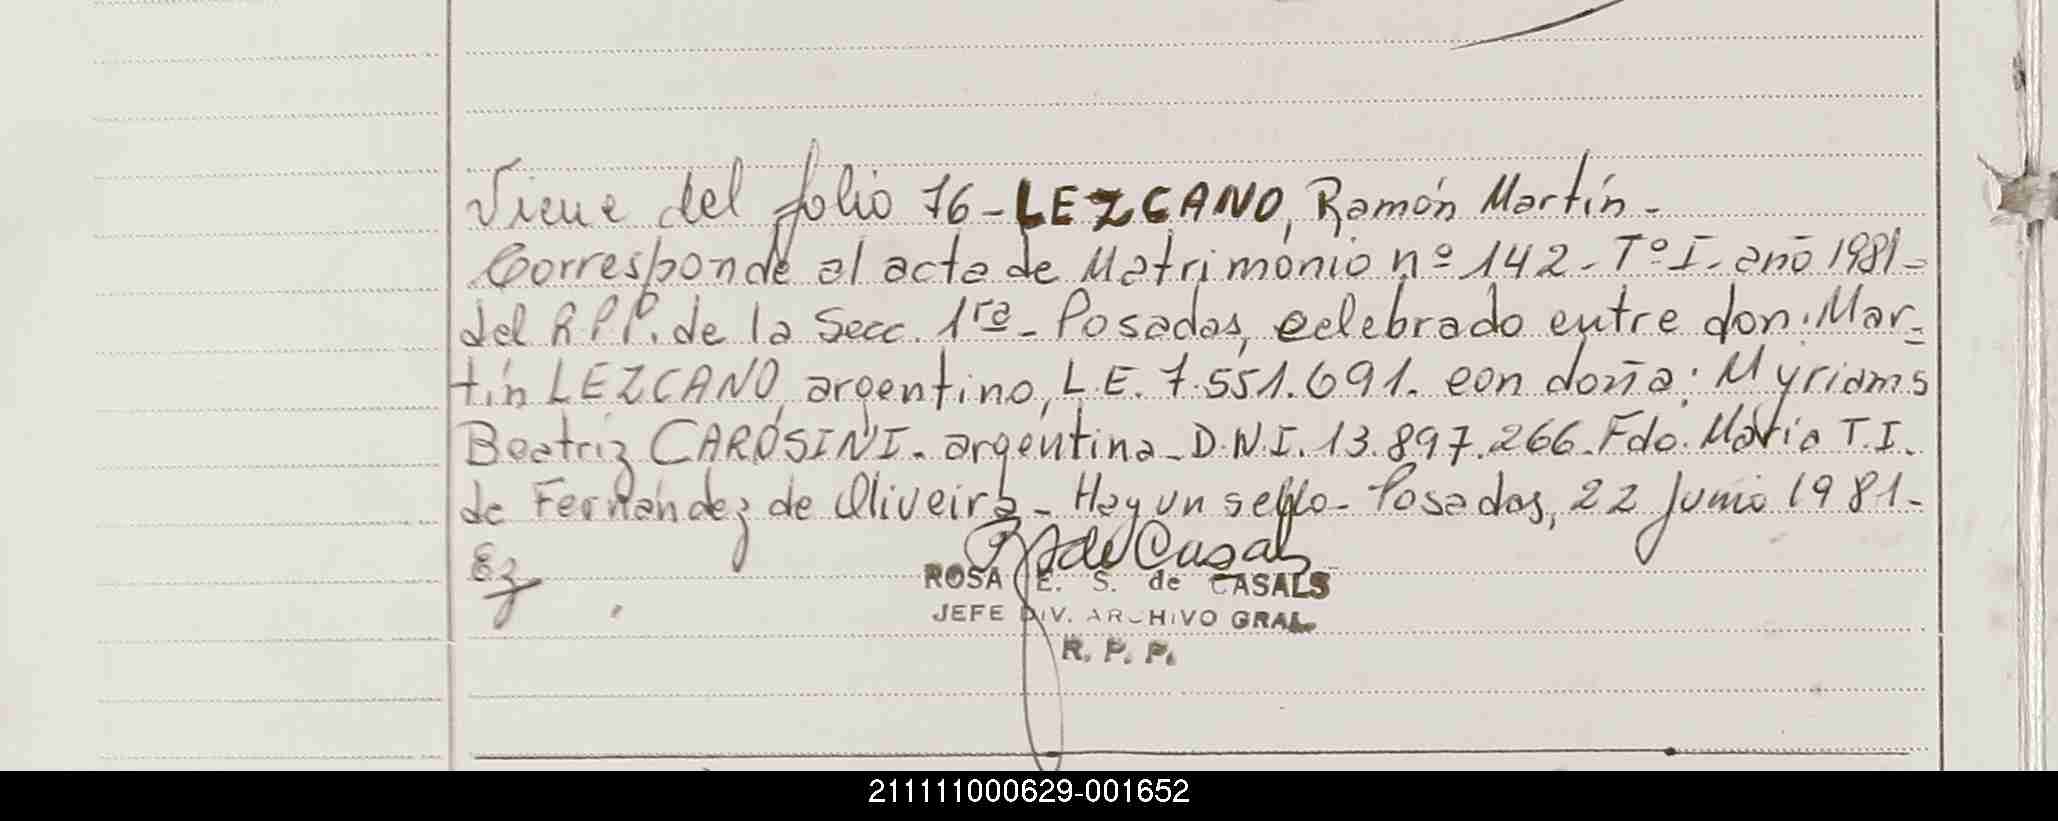 Viene del folio 76 - LEZCANO, Ramón Martín -
Corresponde al acta de Matrimonio nº 142 - Tº I - año 1981 -
del R.P.P. de la Secc. 1ra - Posadas, celebrado entre don: Mar-
tín LEZCANO, argentino, L.E. 7.551.691. con doña: Myriams
Beatriz CAROSINI - argentina - D.N.I. 13.897.266. Fdo. María T.I.
de Fernández de Oliveira - Hay un sello - Posadas, 22 Junio 1981 -
Ez
R de Casals
ROSA E. S. de CASALS
JEFE DIV. ARCHIVO GRAL.
R. P. P.
211111000629-001652